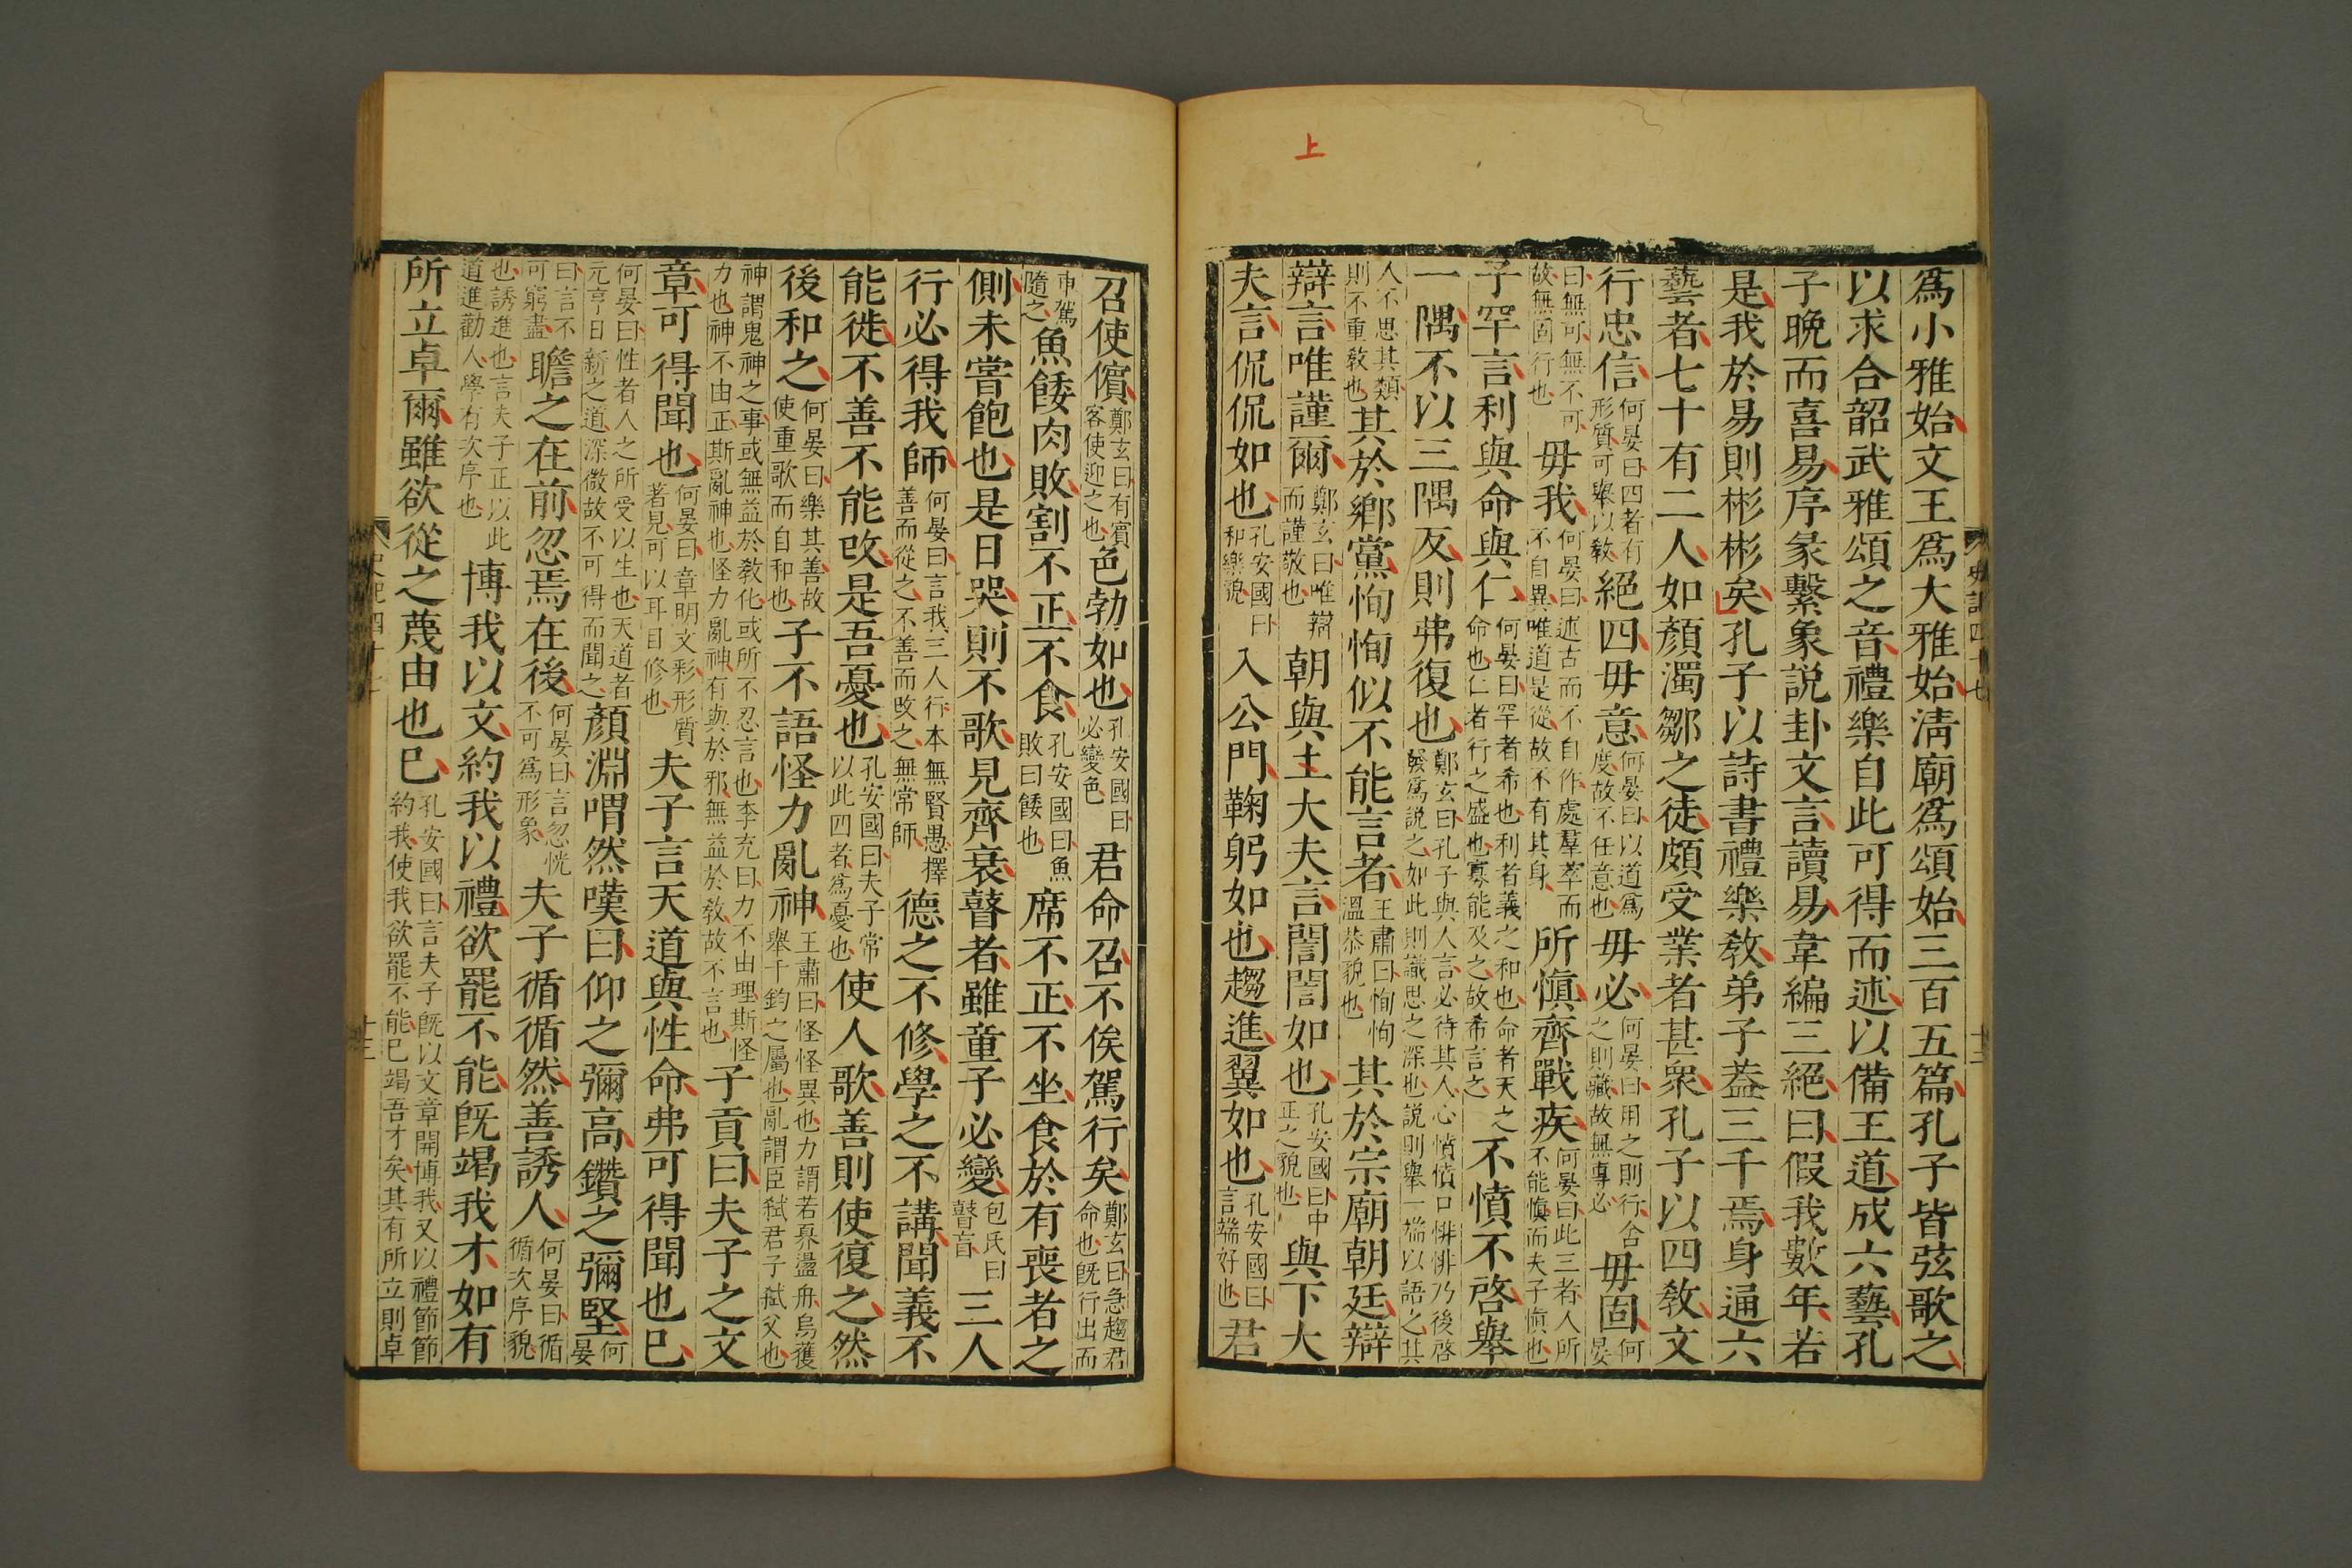 上
爲小雅始文王爲大雅始淸廟爲頌始三百五篇孔子皆弦歌之
以求合韶武雅頌之音禮樂自此可得而述以備王道成六藝孔
子晚而喜易序彖繫象說卦文言讀易韋編三絕曰假我數年若
是我於易則彬彬矣孔子以詩書禮樂敎弟子葢三千焉身通六
藝者七十有二人如顏濁鄒之徒頗受業者甚衆孔子以四敎文
行忠信何晏曰四者有形質可舉以敎絕四毋意何晏曰以道爲度故不任意也毋必何晏曰用之則行舍之則藏故無專必毋固何晏
曰無可無不可故無固行也毋我何晏曰述古而不自作處羣萃而不自異唯道是從故不有其身所愼齊戰疾何晏曰此三者人所不能愼而夫子愼也
子罕言利與命與仁何晏曰罕者希也利者義之和也命者天之命也仁者行之盛也寡能及之故希言之不憤不啓舉
一隅不以三隅反則弗復也鄭玄曰孔子與人言必待其人心憤憤口悱悱乃後啓發爲說之如此則識思之深也說則舉一端以語之其
人不思其類則不重敎也其於鄕黨恂恂似不能言者王肅曰恂恂溫恭貌也其於宗廟朝廷辯
辯言唯謹爾鄭玄曰唯辯而謹敬也朝與上大夫言誾誾如也孔安國曰中正之貌也與下大
夫言侃侃如也孔安國曰和樂貌入公門鞠躬如也趨進翼如也孔安國曰言端好也君
召使儐鄭玄曰有賓客使迎之也色勃如也孔安國曰必變色君命召不俟駕行矣鄭玄曰急趨君命也旣行出而
車駕隨之魚餒肉敗割不正不食孔安國曰魚敗曰餒也席不正不坐食於有喪者之
側未嘗飽也是日哭則不歌見齊衰瞽者雖童子必變包氏曰瞽盲三人
行必得我師何晏曰言我三人行本無賢愚擇善而從之不善而改之無常師德之不修學之不講聞義不
能徙不善不能改是吾憂也孔安國曰夫子常以此四者爲憂也使人歌善則使復之然
後和之何晏曰樂其善故使重歌而自和也子不語怪力亂神王肅曰怪怪異也力謂若奡盪舟烏獲舉千鈞之屬也亂謂臣弒君子弒父也
神謂鬼神之事或無益於敎化或所不忍言也李充曰力不由理斯怪力也神不由正斯亂神也怪力亂神有與於邪無益於敎故不言也子貢曰夫子之文
章可得聞也何晏曰章明文彩形質著見可以耳目修也夫子言天道與性命弗可得聞也已
何晏曰性者人之所受以生也天道者元亨日新之道深微故不可得而聞之顏淵喟然嘆曰仰之彌高鑽之彌堅何晏
曰言不可窮盡瞻之在前忽焉在後何晏曰言忽恍不可爲形象夫子循循然善誘人何晏曰循循次序貌
也誘進也言夫子正以此道進勸人學有次序也博我以文約我以禮欲罷不能旣竭我才如有
所立卓爾雖欲從之蔑由也已孔安國曰言夫子旣以文章開博我又以禮節節約我使我欲罷不能已竭吾才矣其有所立則卓
史記四十七
十三